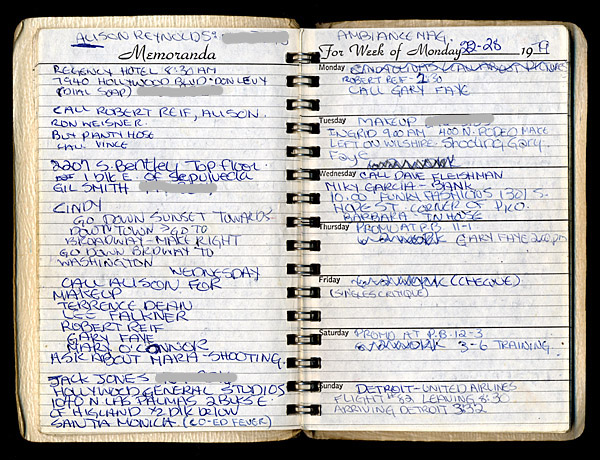 ALISON REYNOLDS:
Memoranda
REGENCY HOTEL 8:30 AM
7940 HOLLYWOOD BLVD. DON LEVY
(DIAL SOAP)
CALL ROBERT REIF, ALISON.
RON WEISNER.
BUY PANTY HOSE
CALL VINCE
2207 S. Bentley Top floor.
1 blk E. of Sepulveda
GIL SMITH
CINDY
GO DOWN SUNSET TOWARDS
DOWNTOWN > GO TO
BROADWAY - MAKE RIGHT
GO DOWN BRDWAY TO
WASHINGTON
WEDNESDAY
CALL ALISON FOR
MAKEUP
TERRENCE DEAN
LEE FALKNER
ROBERT REIF
GARY FAYE
MARY O'CONNOR
ASK ABOUT MARIA - SHOOTING.
JACK JONES
HOLLYWOOD GENERAL STUDIOS
1040 N. LAS PALMAS 2 BLKS E.
OF HIGHLAND 1/2 BLK below
SANTA MONICA (CO-ED FEVER)
AMBIANCE MAG.
For Week of Monday 22-28 1979
Monday
ROBERT REIF - 2:30
CALL GARY FAYE
Tuesday MAKEUP
INGRID 9:00 AM 400 N. RODEO MAKE
LEFT ON WILSHIRE. Shooting Gary
Faye
Wednesday CALL DAVE FLEISHMAN
MIKY GARCIA - BANK
10:00 FUNKY FASHIONS 1301 S.
HOPE ST CORNER OF PICO.
BARBARA IN HOUSE
Thursday PROMO AT P.B. 11-1
GARY FAYE 2:00 pm
Friday (CHEQUE)
(SINGLES CRITIQUE)
Saturday PROMO AT P.B. 12-3
3-6 TRAINING
Sunday DETROIT - UNITED AIRLINES
FLIGHT #82 LEAVING 8:30
ARRIVING DETROIT 3:32